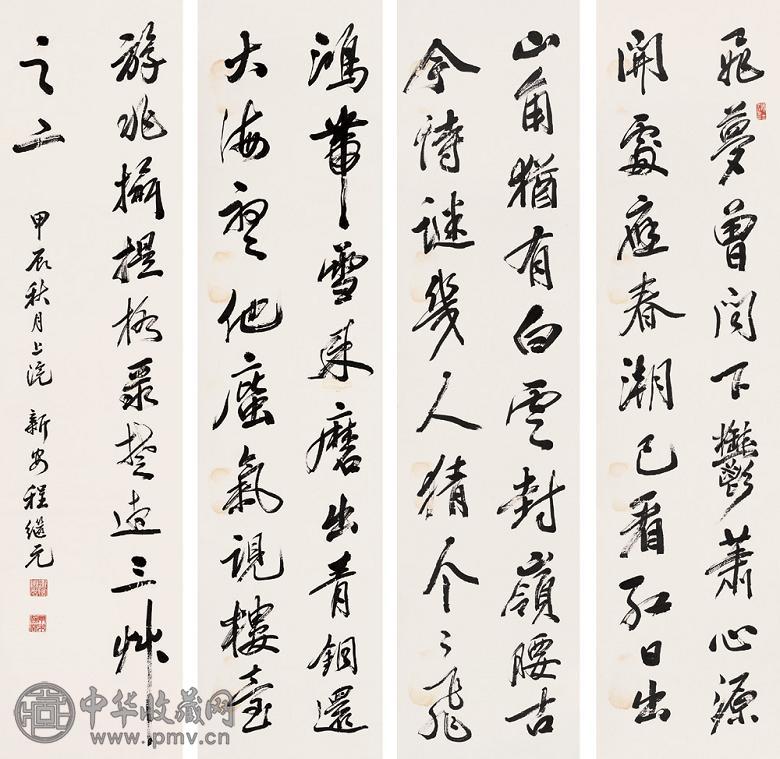 飛夢曾聞下鬱蕭心源
開處應春潮已看紅日出
山角猶有白雲封嶺腰古
今情謎幾人猜个々飛
鴻帶雪來磨出青銅還
大海 他蜃氣現樓臺
游 攝提格 三
之二
甲辰秋月上浣 新安程繼元
中华收藏网
www.pmv.cn